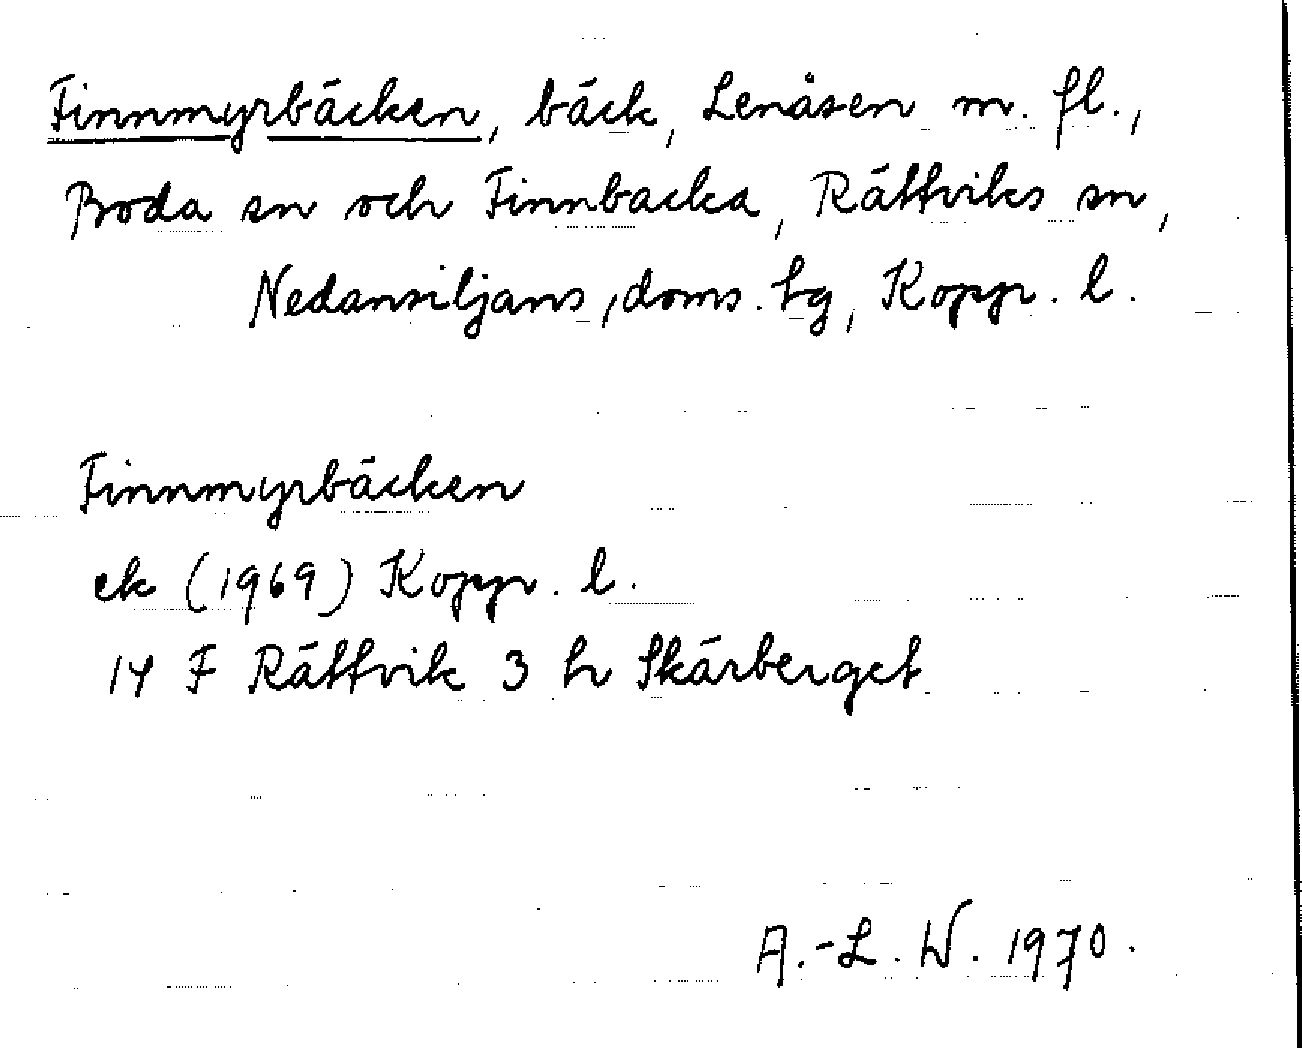 Finnmyrbäcken, bäck, Lenåsen m. fl.,
Boda sn och Finnbacka, Rättviks sn,
Nedansiljans, doms. tg, Kopp. l.
Finnmyrbäcken
ek (1969) Kopp. l.
14 F Rättvik 3 h Skärberget
A.-L. W. 1970.